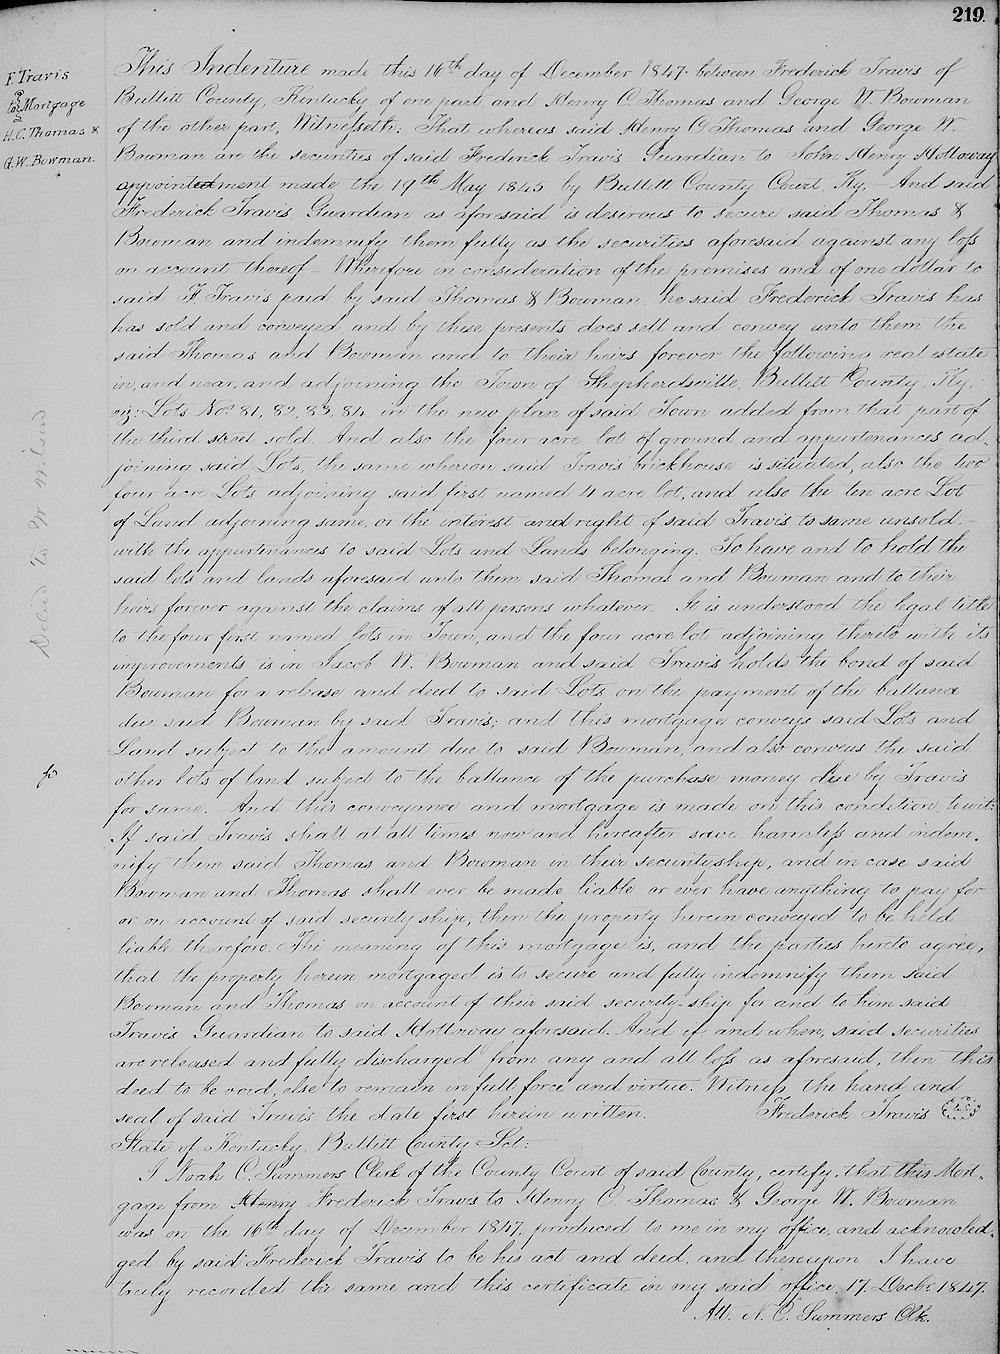 219.
F. Travis
To Mortgage
H. C. Thomas &
G. W. Bowman.
This Indenture made this 16th day of December 1847 between Frederick Travis of
Bullitt County, Kentucky, of one part, and Henry C. Thomas and George W. Bowman
of the other part, Witnesseth: That whereas said Henry C. Thomas and George W.
Bowman are the securities of said Frederick Travis Guardian to John Henry Holloway
appointment made the 19th May 1845 by Bullitt County Court, Ky,– And said
Frederick Travis, Guardian as aforesaid is desirous to secure said Thomas &
Bowman and indemnify them fully as the securities aforesaid against any loss
on account thereof – Wherefore in consideration of the premises and of one dollar to
said F. Travis paid by said Thomas & Bowman, he said Frederick Travis has
has sold and conveyed and by these presents does sell and convey unto them the
said Thomas and Bowman and to their heirs forever the following real estate
in, and near, and adjoining the Town of Shepherdsville, Bullitt County, Ky,
viz: Lots Nos 81, 82, 83, 84, in the new plan of said Town added from that part of
the third street sold. And also the four acre lot of ground and appurtenances ad-
joining said Lots, the same whereon said Travis' brickhouse is situated, also the two
four acre Lots adjoining said first named 4 acre lot, and also the ten acre Lot
of Land adjoining same, or the interest and right of said Travis to same unsold.–
with the appurtenances to said Lots and Lands belonging. To have and to hold the
said lots and lands aforesaid unto them said Thomas and Bowman and to their
heirs forever against the claims of all persons whatever. It is understood the legal title
to the four first named lots in Town, and the four acre lot adjoining thereto with its
improvements is in Jacob W. Bowman and said Travis holds the bond of said
Bowman for a release and deed to said Lots on the payment of the ballance
due said Bowman by said Travis; and this mortgage conveys said Lots and
Land subject to the amount due to said Bowman, and also conveys the said
other lots of land subject to the ballance of the purchase money due by Travis
for same. And this conveyance and mortgage is made on this condition, to wit:
If said Travis shall at all times now and hereafter save harmless and indem-
nify them said Thomas and Bowman in their securityship, and in case said
Bowman and Thomas shall ever be made liable or ever have anything to pay for
or on account of said security ship, then the property herein conveyed to be held
liable therefore. The meaning of this mortgage is, and the parties hereto agree,
that the property herein mortgaged is to secure and fully indemnify them said
Bowman and Thomas on account of their said security-ship for and to him said
Travis Guardian to said Holloway aforesaid. And if, and when, said securities
are released and fully discharged from any and all loss as aforesaid, then this
deed to be void, else to remain in full force and virtue. Witness, the hand and
seal of said Travis the date first herein written. Frederick Travis
State of Kentucky, Bullitt County – Sct:
I Noah C. Summers, Clerk of the County Court of said County, certify, that this Mort-
gage from Henry Frederick Travis to Henry C. Thomas & George W. Bowman
was on the 16th day of December 1847, produced to me in my office, and acknowled-
ged by said Frederick Travis to be his act and deed, and thereupon I have
truly recorded the same and this certificate in my said office, 17, Decbr. 1847.
Att. N. C. Summers Clk.